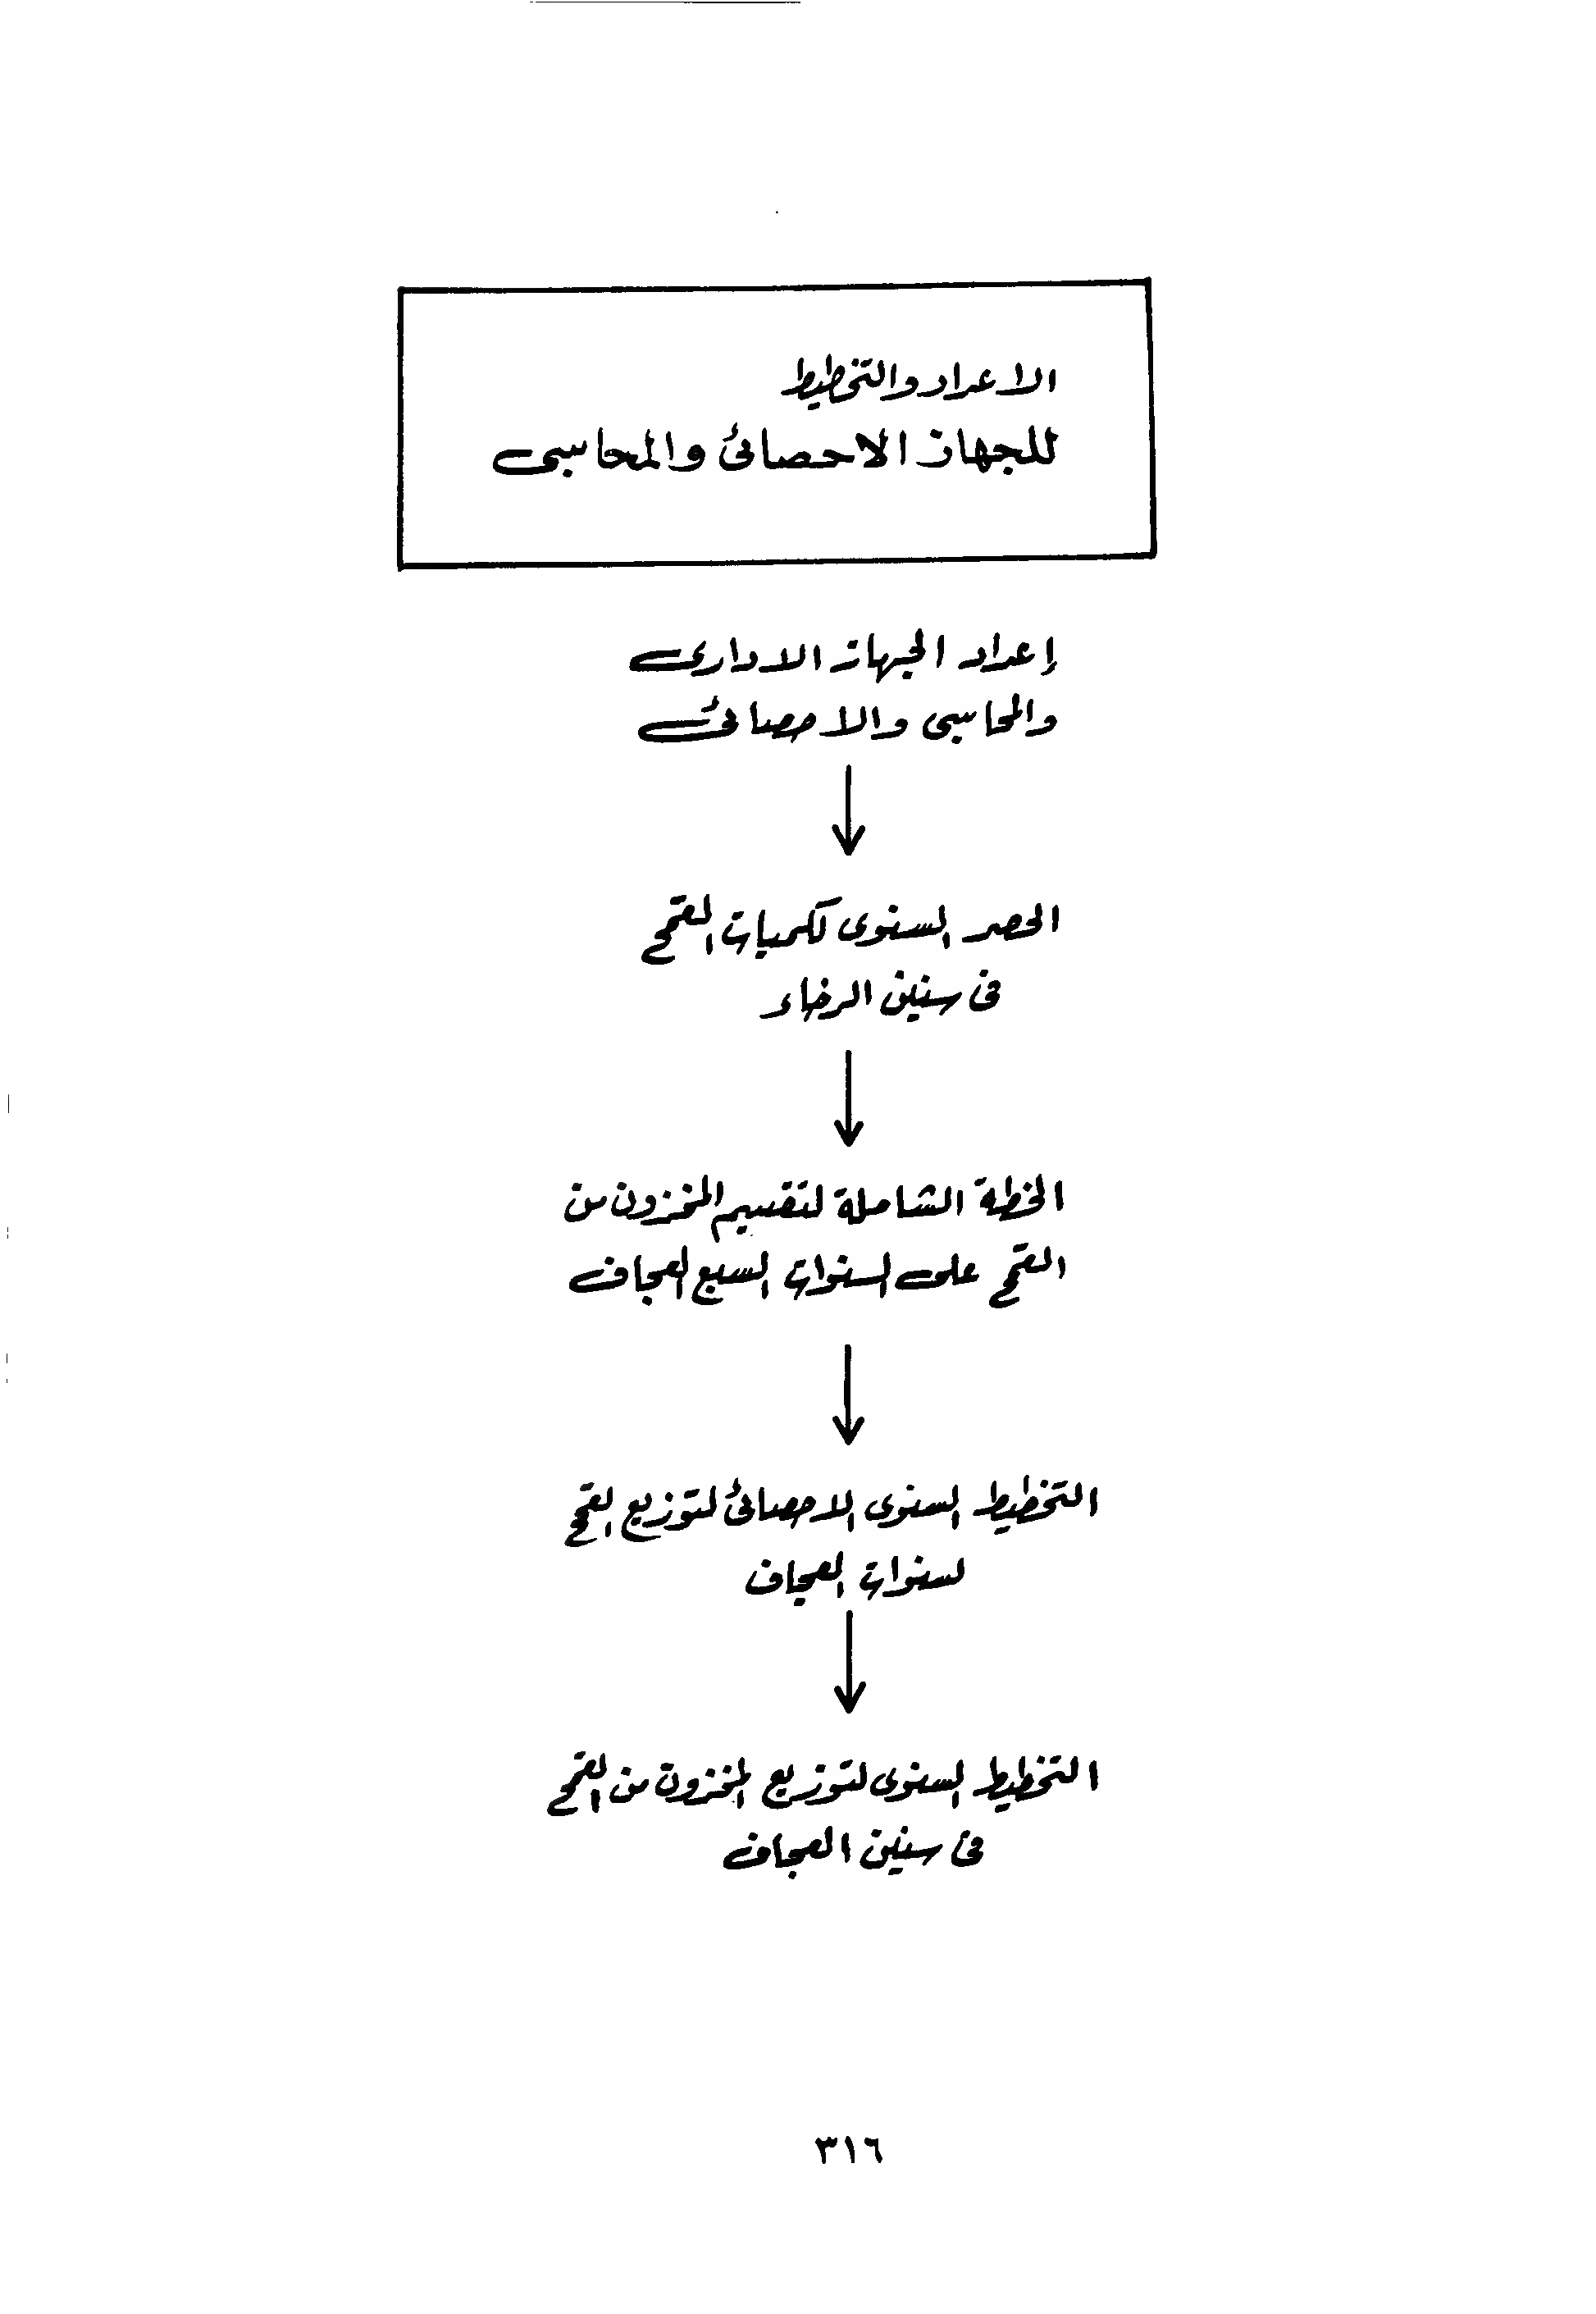 الاعداد والتخطيط
للجهاز الاحصائى والمحاسبى
إعداد الجهاز الادارى
والمحاسبى والاحصائى
الحصر السنوى لكميات القمح
فى سنين الرخاء
الخطة الشاملة لتقسيم المخزون من
القمح على السنوات السبع العجاف
التخطيط السنوى الاحصائى لتوزيع القمح
لسنوات العجاف
التخطيط السنوى لتوزيع المخزون من القمح
فى سنين العجاف
٣١٦